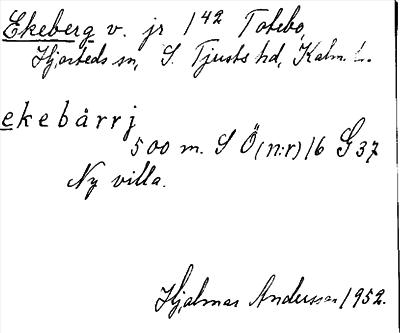 Ekeberg v. jr 1⁴² Totebo,
Hjorteds sn, S. Tjusts hd, Kalm. L.
ekebärrj
500 m. S Ö (n:r) 16 G 37
Ny villa.
Hjalmar Andersson 1952.